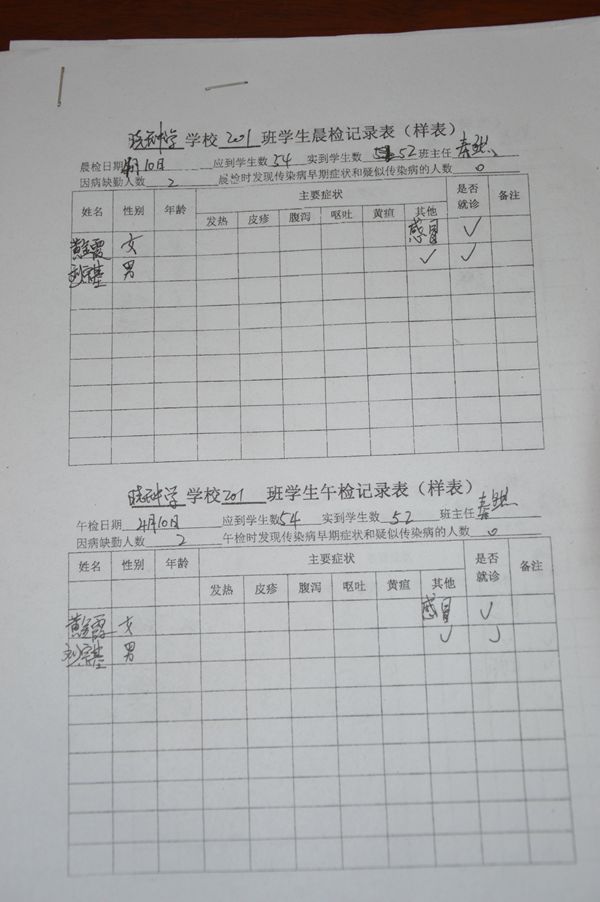 中学 学校 201 班学生晨检记录表（样表）
晨检日期 4月10日 应到学生数 54 实到学生数 52 班主任
因病缺勤人数 2 晨检时发现传染病早期症状和疑似传染病的人数 0
姓名 性别 年龄 主要症状 是否就诊 备注
发热 皮疹 腹泻 呕吐 黄疸 其他
感冒 ✓
女 ✓ ✓
男
中学 学校 201 班学生午检记录表（样表）
午检日期 4月10日 应到学生数 54 实到学生数 52 班主任
因病缺勤人数 2 午检时发现传染病早期症状和疑似传染病的人数 0
姓名 性别 年龄 主要症状 是否就诊 备注
发热 皮疹 腹泻 呕吐 黄疸 其他
感冒 ✓
女 ✓ ✓
男